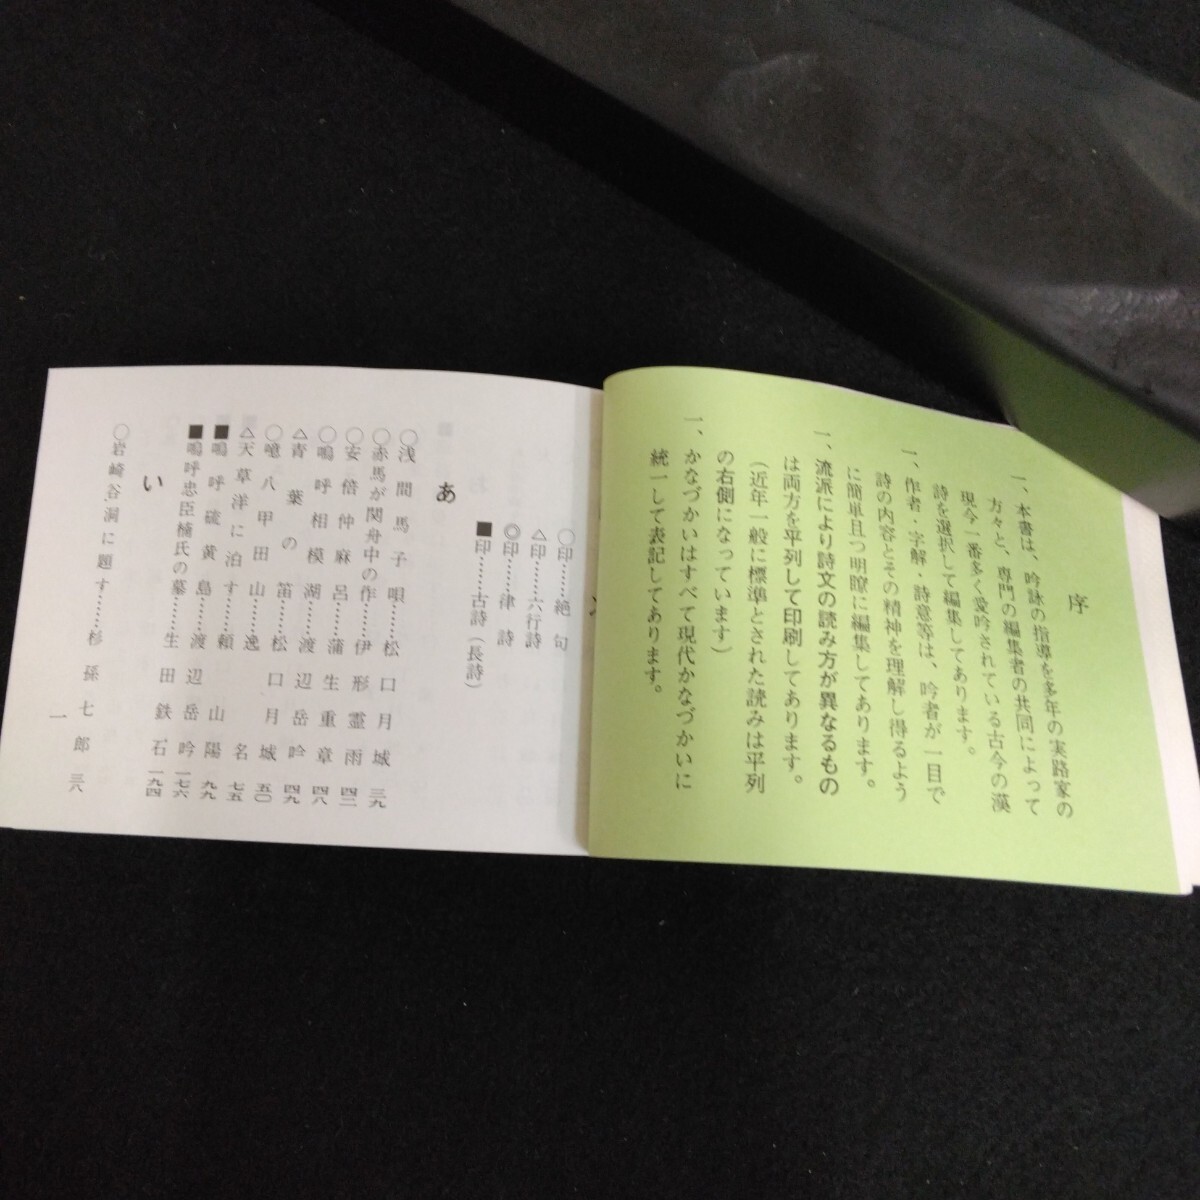 序
一、本書は、吟詠の指導を多年の実路家の
方々と、専門の編集者の共同によって
現今一番多く愛吟されている古今の漢
詩を選択して編集してあります。
一、作者・字解・詩意等は、吟者が一目で
詩の内容とその精神を理解し得るよう
に簡単且つ明瞭に編集してあります。
一、流派により詩文の読み方が異なるもの
は両方を平列して印刷してあります。
(近年一般に標準とされた読みは平列
の右側になっています)
一、かなづかいはすべて現代かなづかいに
統一して表記してあります。
○印……絶句
△印……六行詩
◎印……律詩
■印……古詩(長詩)
あ
○浅間馬子唄……松口月城 三九
○赤馬が関舟中の作……伊形霊雨 四二
○安倍仲麻呂……蒲生重章 四八
○嗚呼相模湖……渡辺岳吟 四九
△青葉の笛……松口月城 五〇
○噫八甲田山……逸名 七五
△天草洋に泊す……頼山陽 九九
■嗚呼硫黄島……渡辺岳吟 一七六
■嗚呼忠臣楠氏の墓……生田鉄石 一九四
い
○岩崎谷洞に題す……杉孫七郎 三八
一